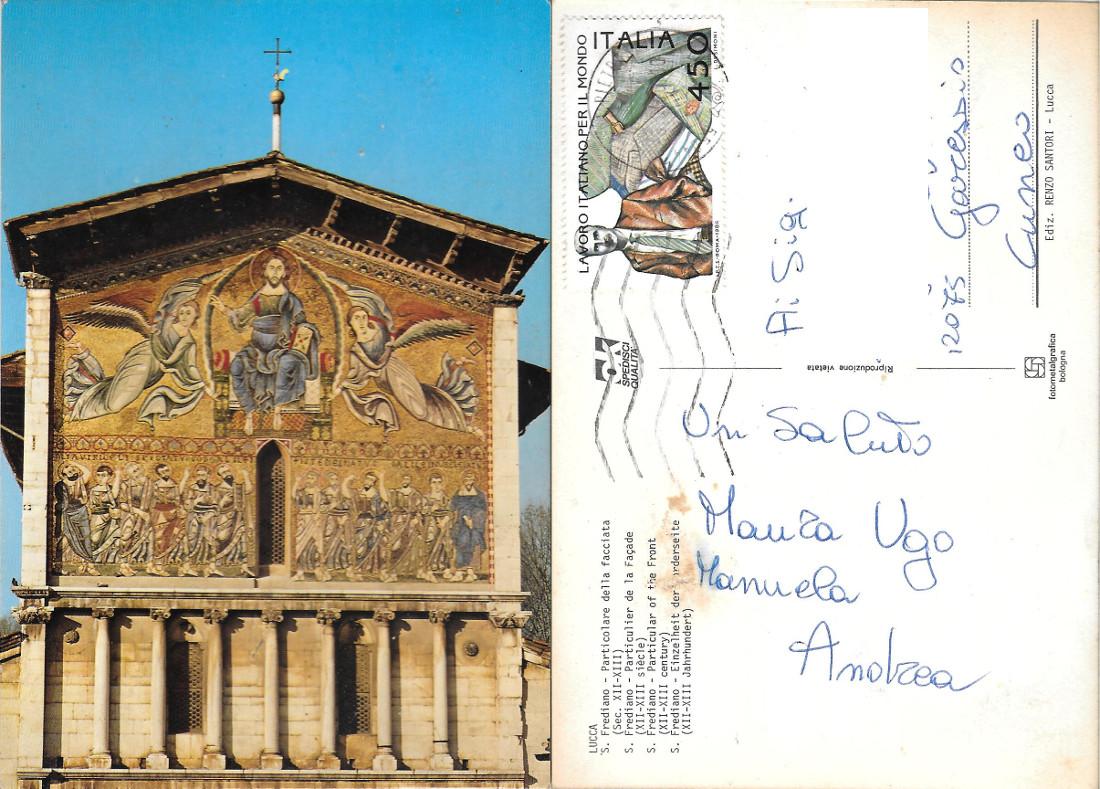 LAVORO ITALIANO PER IL MONDO
ITALIA 450
I.P.Z.S.-ROMA-1986
SPEDISCI QUALITÀ
Riproduzione vietata
fotometalgrafica
bologna
Ediz. RENZO SANTORI - Lucca
Ai Sig.
12075 Garessio
Cuneo
Un Saluto
Maura Ugo
Manuela
Andrea
LUCCA
S. Frediano - Particolare della facciata
(Sec. XII-XIII)
S. Frediano - Particulier de la Façade
(XII-XIII siècle)
S. Frediano - Particular of the Front
(XII-XIII century)
S. Frediano - Einzelheit der orderseite
(XII-XIII Jahrhundert)